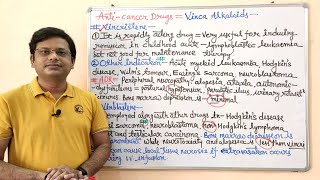 Anti-cancer Drugs = Vinca Alkaloids
① It is rapidly acting drug – Very useful for inducing
remission in childhood acute lymphoblastic leukaemia
but not good for maintenance
② Other Indication – Acute myeloid leukaemia, Hodgkin's
disease, Wilm's tumour, Ewing's sarcoma, neuroblastoma
# ADR – Peripheral neuropathy, alopecia, ataxia, autonomic
dysfunctions = postural hypotension, paralytic ileus, urinary retention
Bone marrow depression is minimal
employed along with other drugs in – Hodgkin's disease
sarcoma, neuroblastoma, non Hodgkin's lymphoma
and testicular carcinoma. Bone marrow depression is
while neurotoxicity and alopecia less than
can cause local tissue necrosis if extravasation occurs
during I.V. infusion